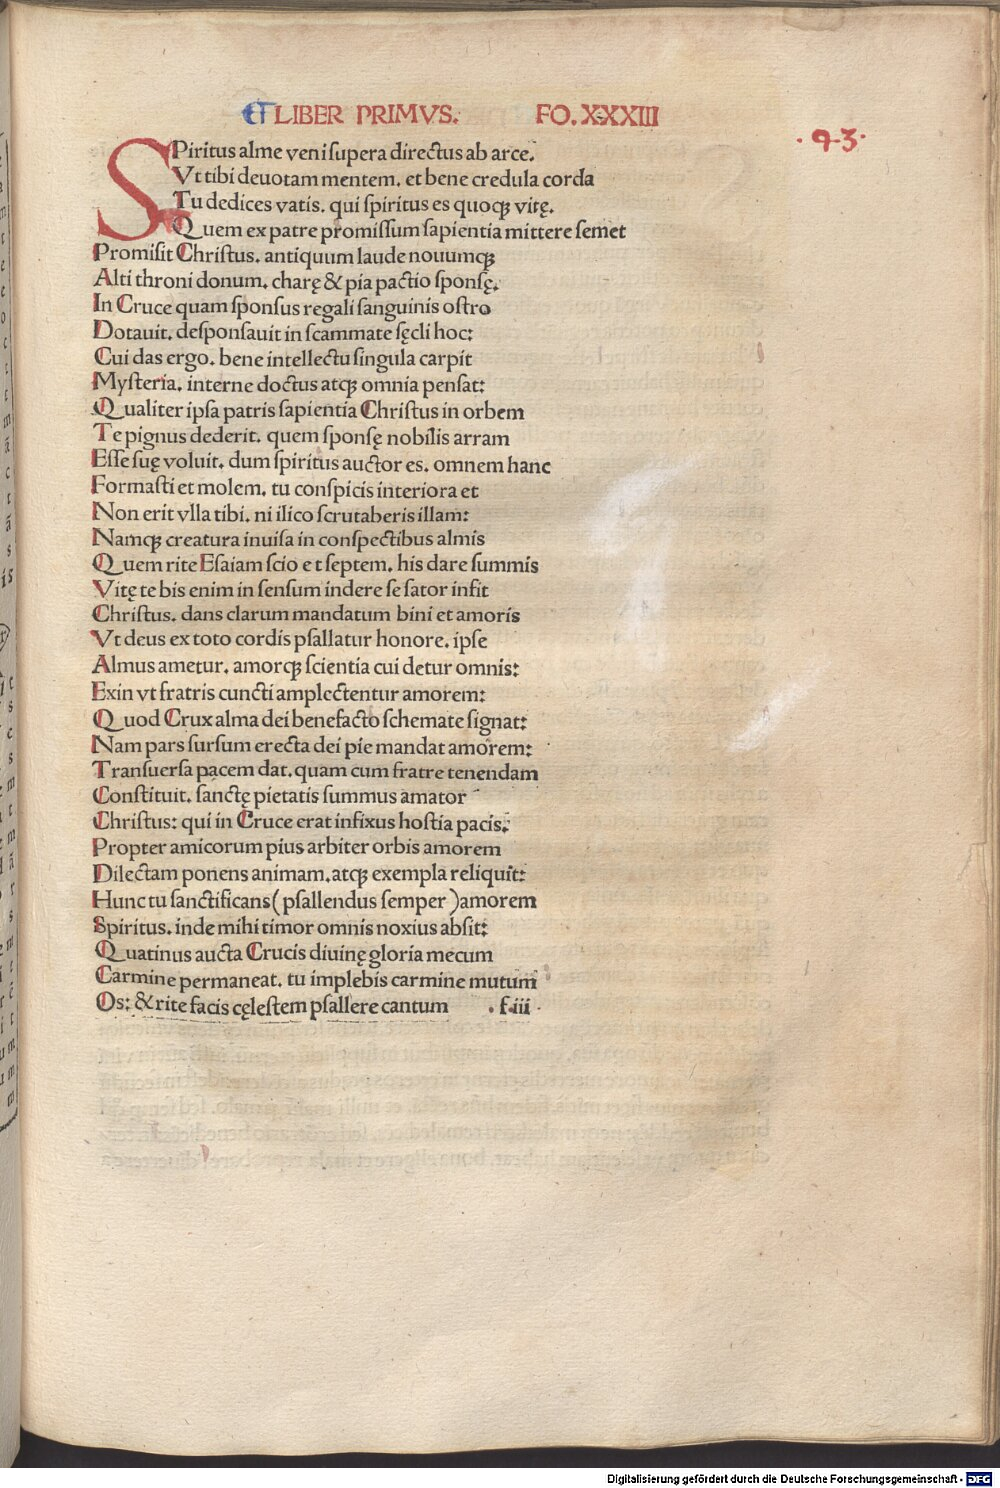 ET LIBER PRIMVS. FO. XXXIII
.93.
SPiritus alme veni ſupera directus ab arce.
Vt tibi deuotam mentem. et bene credula corda
Tu dedices vatis. qui ſpiritus es quoqꝫ vitę.
Quem ex patre promiſſum ſapientia mittere ſemet
Promiſit Chriſtus. antiquum laude nouumqꝫ
Alti throni donum. charę & pia pactio ſponſę.
In Cruce quam ſponſus regali ſanguinis oſtro
Dotauit. deſponſauit in ſcammate ſęcli hoc:
Cui das ergo. bene intellectu ſingula carpit
Myſteria. interne doctus atqꝫ omnia penſat:
Qualiter ipſa patris ſapientia Chriſtus in orbem
Te pignus dederit. quem ſponſę nobilis arram
Eſſe ſuę voluit. dum ſpiritus auctor es. omnem hanc
Formaſti et molem. tu conſpicis interiora et
Non erit vlla tibi. ni ilico ſcrutaberis illam:
Namqꝫ creatura inuiſa in conſpectibus almis
Quem rite Eſaiam ſcio et ſeptem. his dare ſummis
Vitę te bis enim in ſenſum indere ſe ſator infit
Chriſtus. dans clarum mandatum bini et amoris
Vt deus ex toto cordis pſallatur honore. ipſe
Almus ametur. amorqꝫ ſcientia cui detur omnis:
Exin vt fratris cuncti amplectentur amorem:
Quod Crux alma dei benefacto ſchemate ſignat:
Nam pars ſurſum erecta dei pie mandat amorem:
Tranſuerſa pacem dat. quam cum fratre tenendam
Conſtituit. ſanctę pietatis ſummus amator
Chriſtus: qui in Cruce erat infixus hoſtia pacis.
Propter amicorum pius arbiter orbis amorem
Dilectam ponens animam. atqꝫ exempla reliquit:
Hunc tu ſanctificans (pſallendus ſemper )amorem
Spiritus. inde mihi timor omnis noxius abſit:
Quatinus aucta Crucis diuinę gloria mecum
Carmine permaneat. tu implebis carmine mutum
Os: & rite facis cęleſtem pſallere cantum . f.iii .
Digitalisierung gefördert durch die Deutsche Forschungsgemeinschaft - DFG